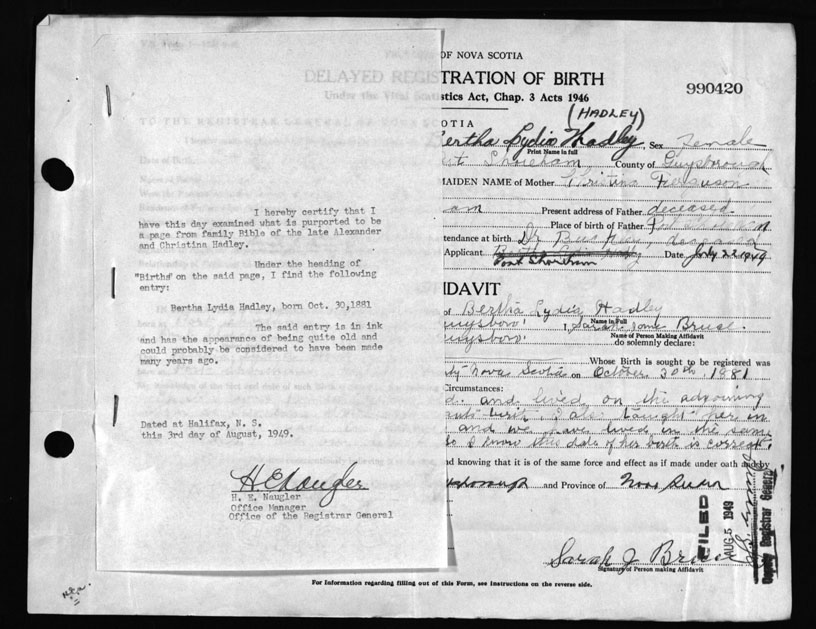 I hereby certify that I
have this day examined what is purported to be
a page from family Bible of the late Alexander
and Christina Hadley.
Under the heading of
"Births" on the said page, I find the following
entry:
Bertha Lydia Hadley, born Oct. 30,1881
The said entry is in ink
and has the appearance of being quite old and
could probably be considered to have been made
many years ago.
Dated at Halifax, N. S.
this 3rd day of August, 1949.
H. E. Naugler
H. E. Naugler
Office Manager
Office of the Registrar General
OF NOVA SCOTIA
DELAYED REGISTRATION OF BIRTH
990420
Under the Vital Statistics Act, Chap. 3 Acts 1946
(HADLEY)
SCOTIA
Bertha Lydia Hadley Sex Female
Print Name in full
Shoreham County of Guysborough
MAIDEN NAME of Mother Christina Ferguson
am Present address of Father deceased
Place of birth of Father
attendance at birth Dr deceased
Applicant Date July 22 1949
Port Shoreham
FIDAVIT
of Bertha Lydia Hadley
Name in Full
Guysboro' I, Sarah Jane Bruse.
Name of Person Making Affidavit
Guysboro' do solemnly declare:
Whose Birth is sought to be registered was
Nova Scotia on October 30th, 1881
Circumstances:
d. and lived on the adjoining
birth. I also taught her in
and we have lived in the same
so I know this date of her birth is correct.
and knowing that it is of the same force and effect as if made under oath and by
and Province of Nova Scotia
FILED
AUG 5 1949
Deputy Registrar General
Sarah J Bruse
Signature of Person making Affidavit
For Information regarding filling out of this Form, see Instructions on the reverse side.